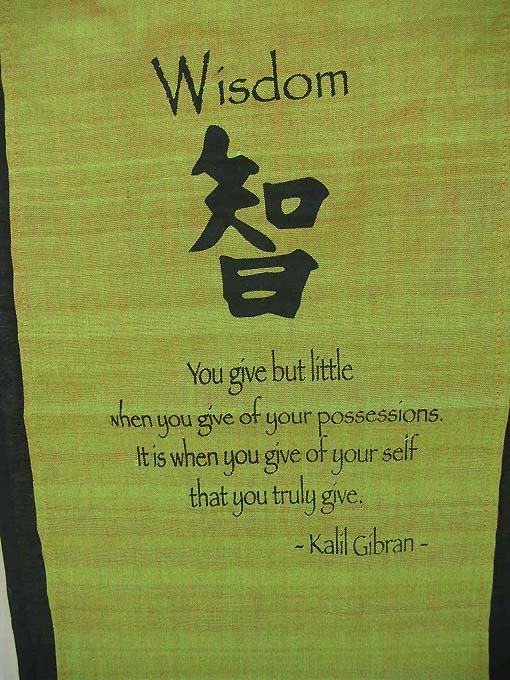 Wisdom
智
You give but little
when you give of your possessions.
It is when you give of your self
that you truly give.
- Kalil Gibran -